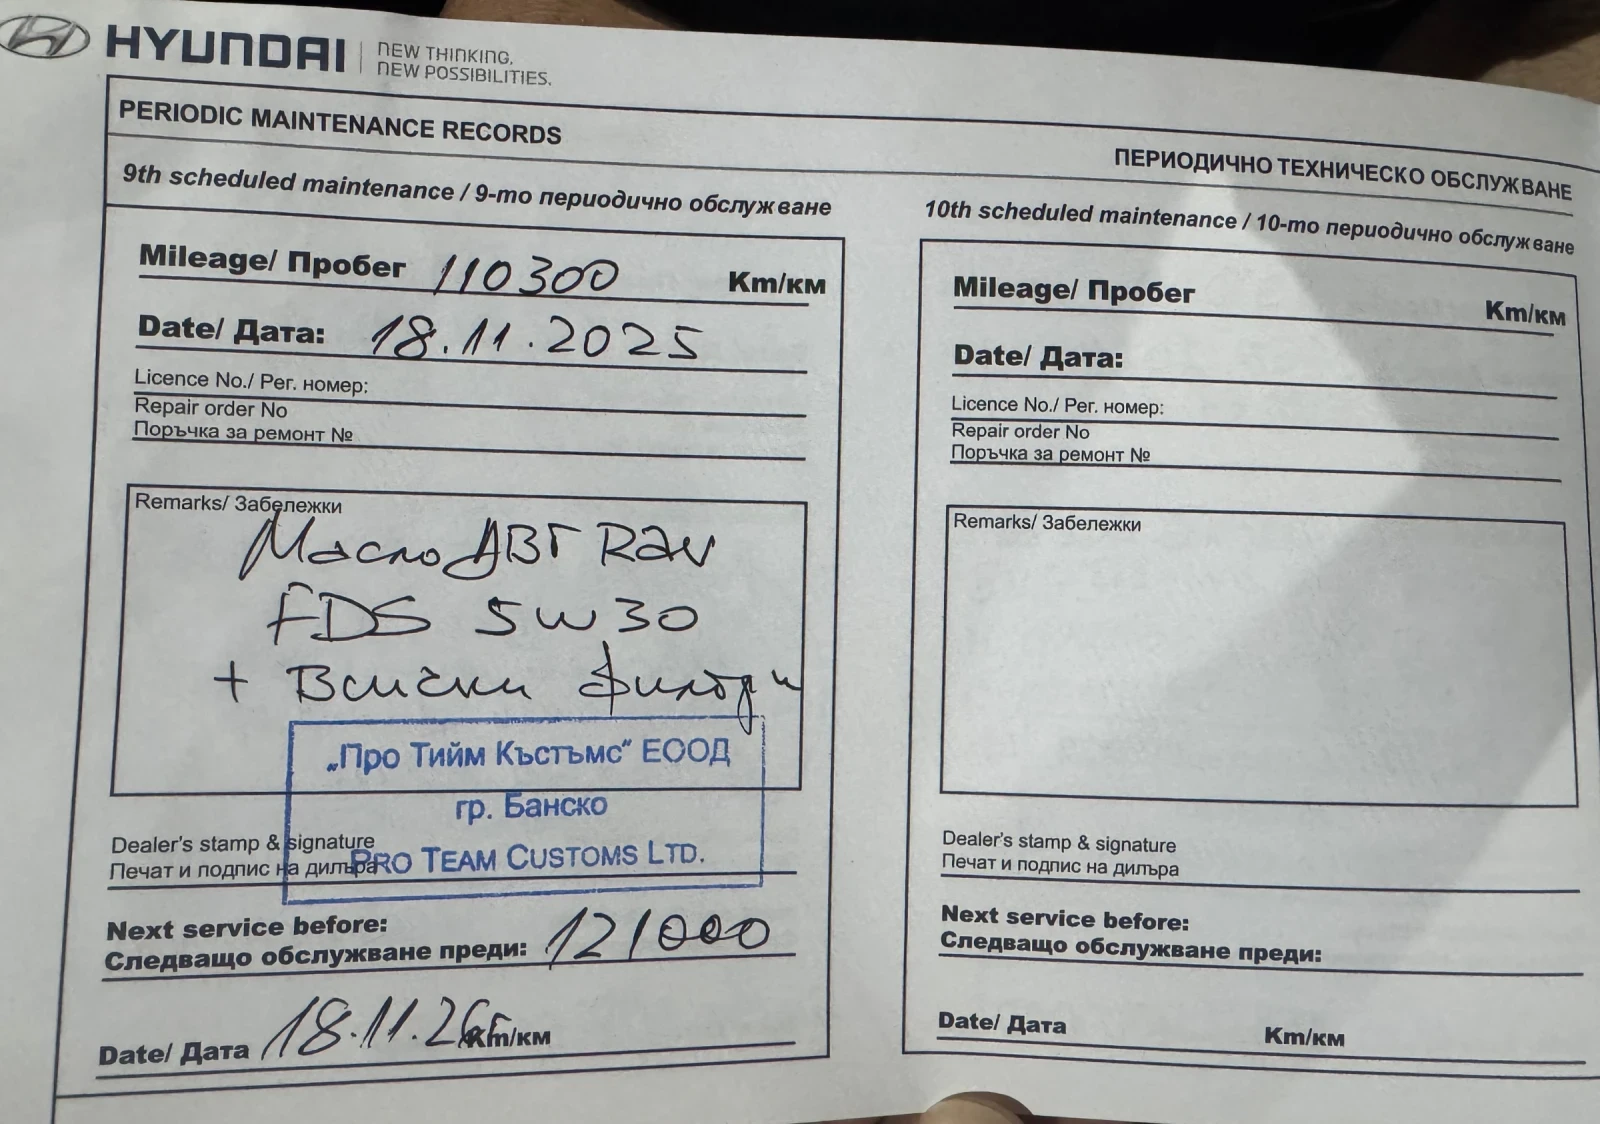 HYUNDAI
NEW THINKING.
NEW POSSIBILITIES.
PERIODIC MAINTENANCE RECORDS
ПЕРИОДИЧНО ТЕХНИЧЕСКО ОБСЛУЖВАНЕ
9th scheduled maintenance / 9-то периодично обслужване
Mileage/ Пробег 110300 Km/км
Date/ Дата: 18.11.2025
Licence No./ Рег. номер:
Repair order No
Поръчка за ремонт №
Remarks/ Забележки
Масло ДВГ Rav
FDS 5W30
+ Всички филтри
„Про Тийм Къстъмс“ ЕООД
гр. Банско
PRO TEAM CUSTOMS LTD.
Dealer's stamp & signature
Печат и подпис на дилъра
Next service before:
Следващо обслужване преди: 121000
Date/ Дата 18.11.26 Km/км
10th scheduled maintenance / 10-то периодично обслужване
Mileage/ Пробег Km/км
Date/ Дата:
Licence No./ Рег. номер:
Repair order No
Поръчка за ремонт №
Remarks/ Забележки
Dealer's stamp & signature
Печат и подпис на дилъра
Next service before:
Следващо обслужване преди:
Date/ Дата Km/км